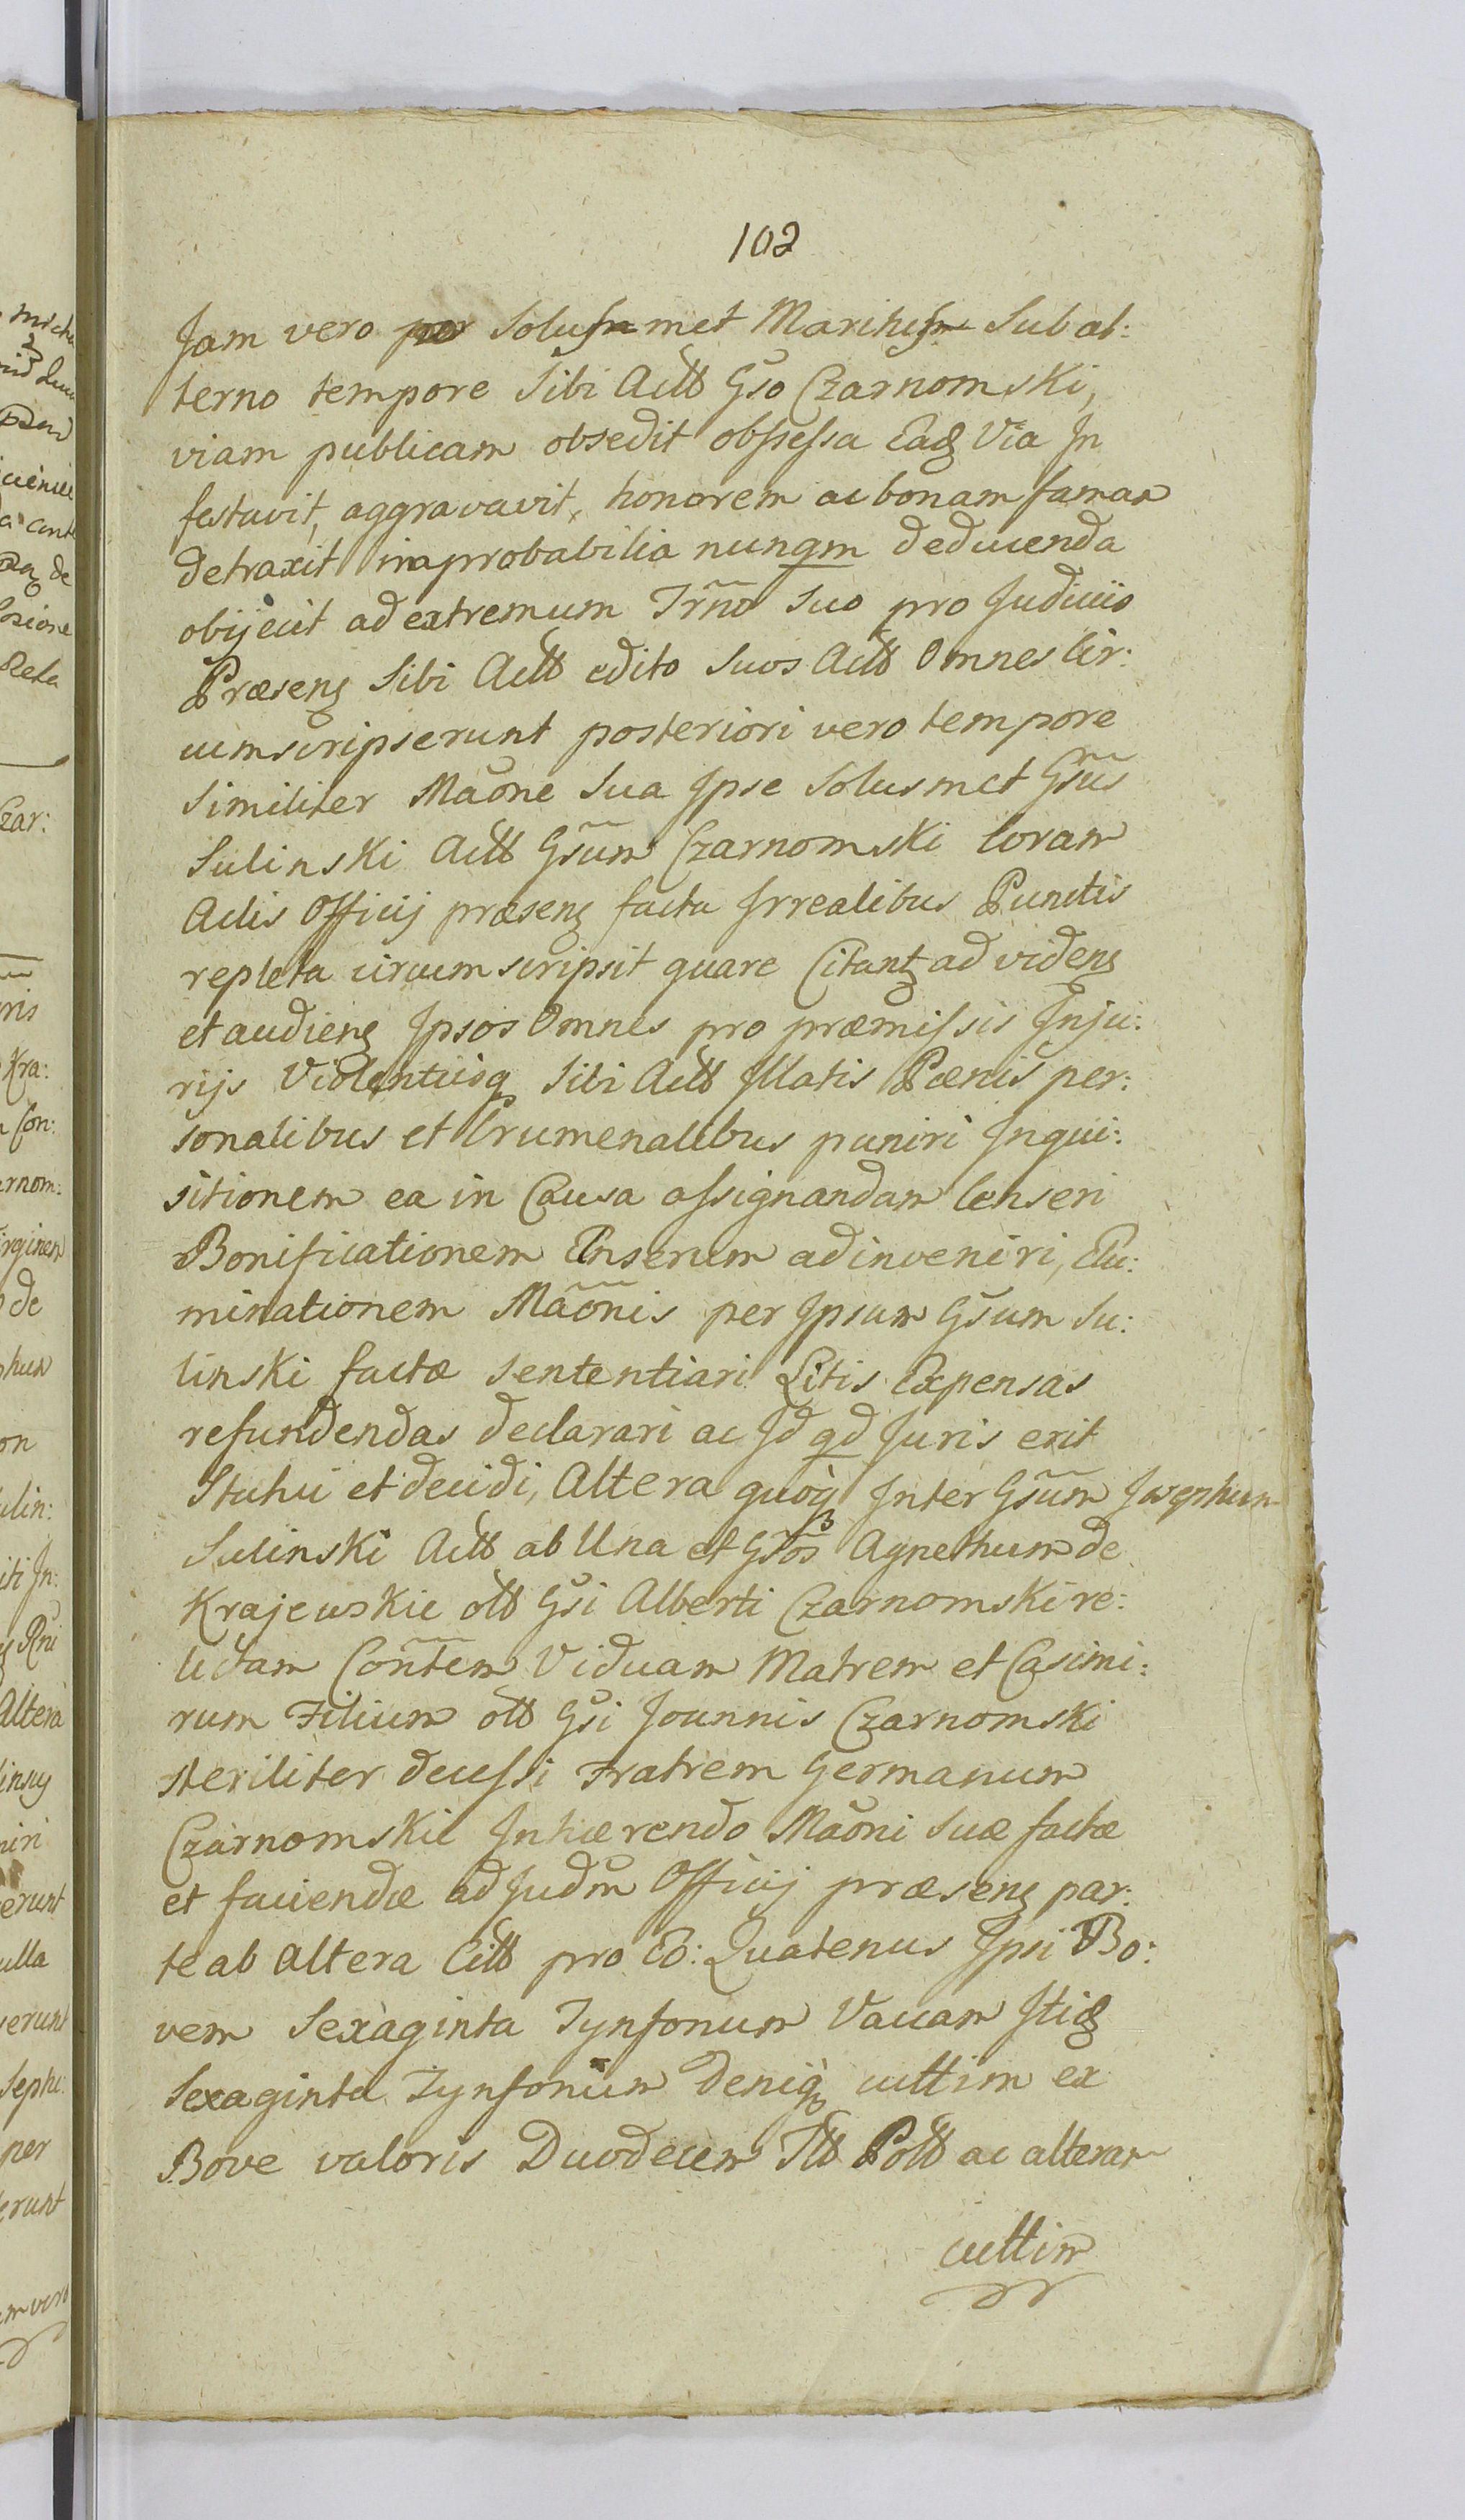 102
Jam vero per Solusmet Maritus Subal:
terno tempore Sibi Actt Gso Czarnomski,
viam publicam obsedit obsessa Eaq Via In
festavit, aggravavit, honorem ac bonam famam
detraxit improbabilia nunqm deducenda
obijecit ad extremum Trno Suo pro Judicio
Præseng Sibi Actt edito Suos Actt Omnes Cir:
cumscripserunt posteriori vero tempore
similiter Maone Sua Ipse Solusmet Gsus
Sulinski Actt Gsum Czarnomski Coram
Actis Officij præseng facta Irrealibus Punctis
repleta circumscripsit quare Citant ad videng
et audieng Ipsos Omnes pro præmissis Inju:
rijs Violentiisq Sibi Actt Illatis Pœnis per:
sonalibus et Crumenalibus puniri Inqui:
sitionem ea in Causa assignandam Censeri
Bonificationem Enserum adinveniri, Elu:
minationem Maonis per Ipsum Gsum Su:
linski factæ sententiari Litis Expensas
refundendas declarari ac Id qd Juris erit
Statui et decidi, Altera quoq Inter Gsum Josephum
Sulinski Actt ab Una et Gsos Agnethum de
Krajewskie ott Gsi Alberti Czarnomski re:
lictam Contem Viduam Matrem et Casimi:
rum Filium ott Gsi Joannis Czarnomski
steriliter decessi Fratrem Germanum
Czarnomskie Inhærendo Maoni Suæ factæ
et faciendæ ad Judm Officij præseng par:
te ab altera Citt pro Eo: Quatenus Ipsi Bo:
vem Sexaginta Tynfonum Vaccam Itiq
Sexaginta Tynfonum Deniq cuttim ex
Bove valoris Duodecem Ttt Pott ac alteram
cuttim